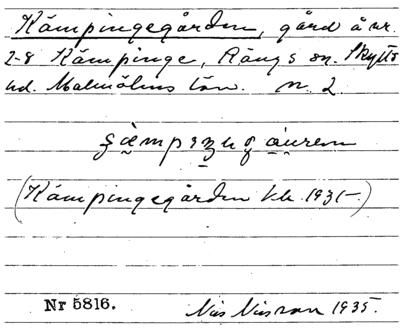 Kämpingegården, gård å nr.
2-8 Kämpinge, Rängs sn. Skytts
hd. Malmöhus län. m. 2
(Kämpingegården kk 1931-)
Nr 5816. Nils Nilsson 1935.